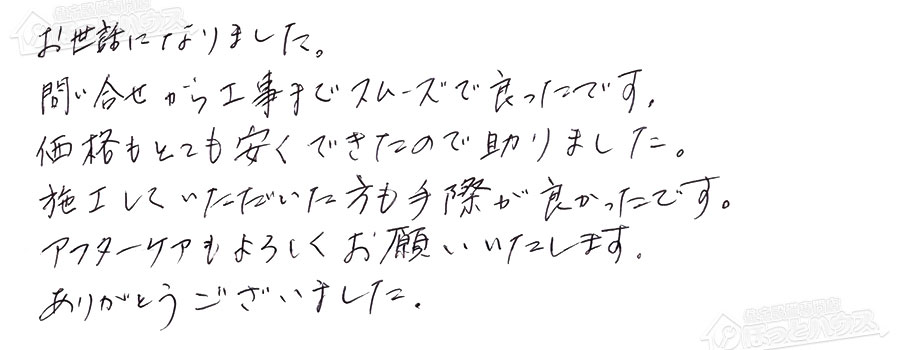 お世話になりました。
問い合せから工事までスムーズで良ったです。
価格もとても安くできたので助りました。
施工していただいた方も手際が良かったです。
アフターケアもよろしくお願いいたします。
ありがとうございました。
ほっとハウス